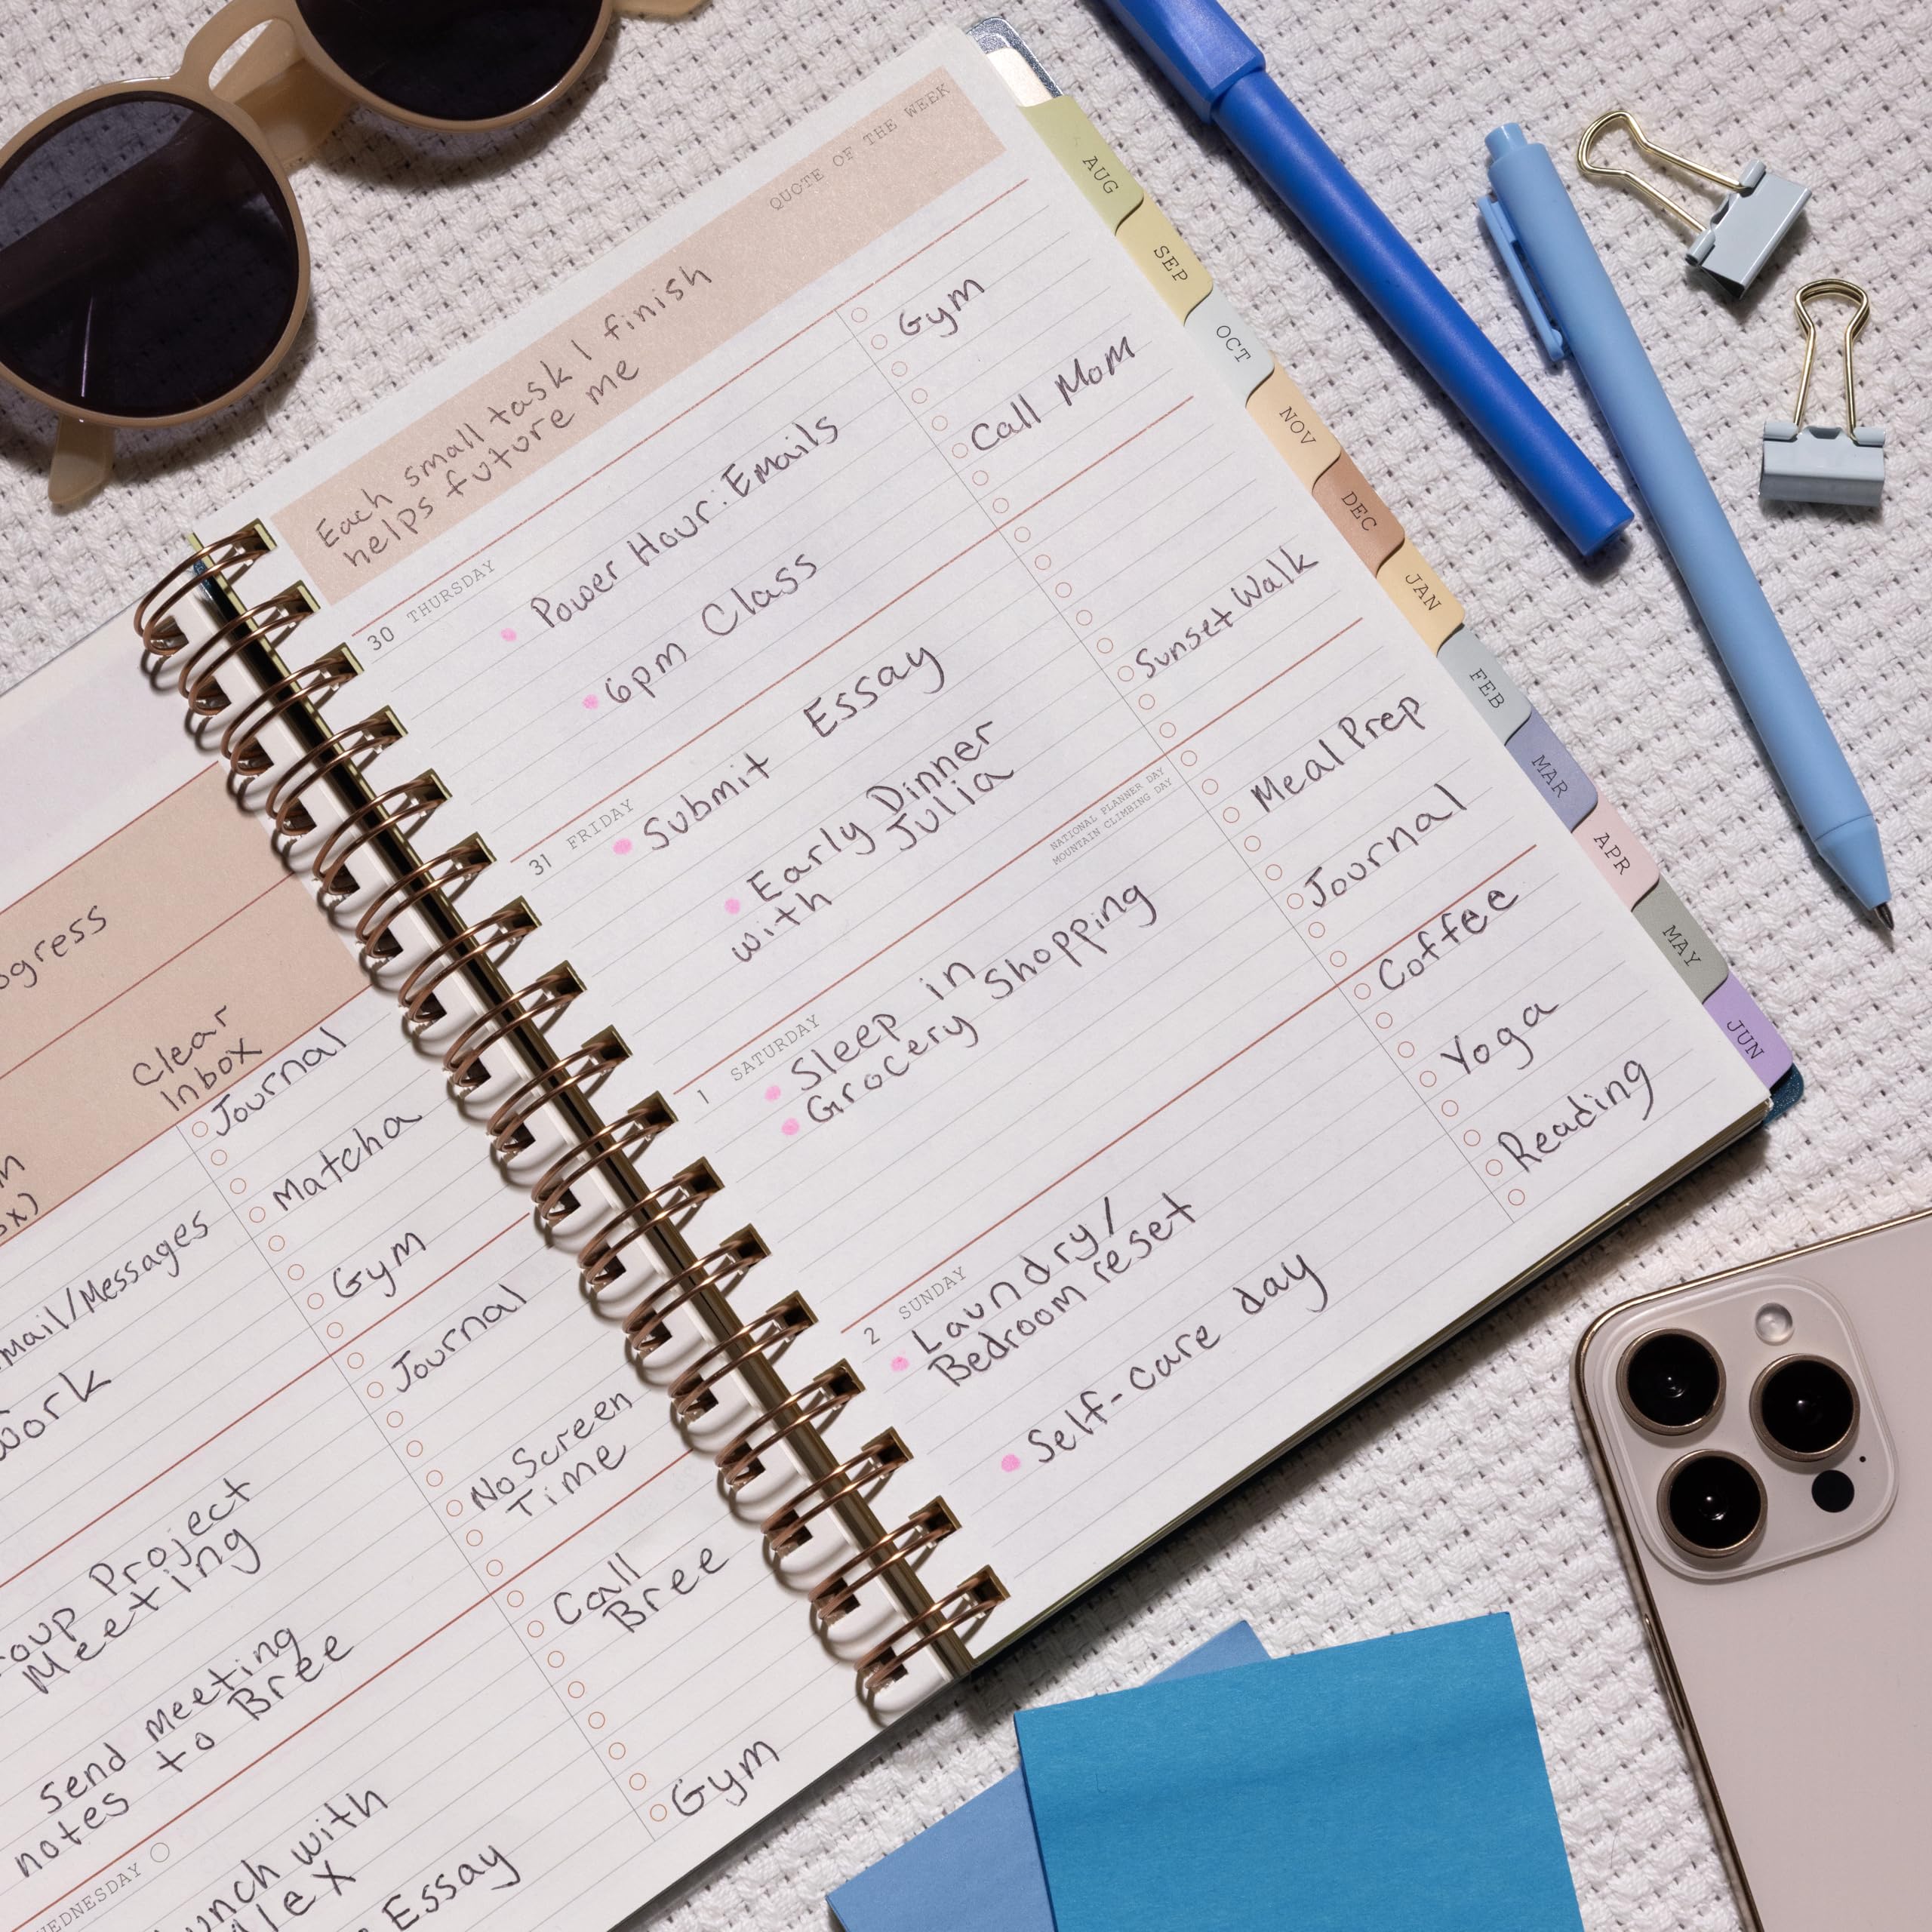 ogress
Clear
Inbox
Journal
Matcha
mail/Messages
Gym
Work
Journal
No Screen
Time
roup Project
Meeting
Call
Bree
Send Meeting
notes to Bree
EDNESDAY
unch with
Gym
Essay
QUOTE OF THE WEEK
Each small task I finish
helps future me
30 THURSDAY
Power Hour: Emails
6pm Class
Gym
Call Mom
31 FRIDAY
Submit Essay
Early Dinner
with Julia
Sunset Walk
1 SATURDAY
NATIONAL PLANNER DAY
MOUNTAIN CLIMBING DAY
Sleep in
Grocery Shopping
Meal Prep
Journal
2 SUNDAY
Laundry/
Bedroom reset
Self-care day
Coffee
Yoga
Reading
AUG
SEP
OCT
NOV
DEC
JAN
FEB
MAR
APR
MAY
JUN